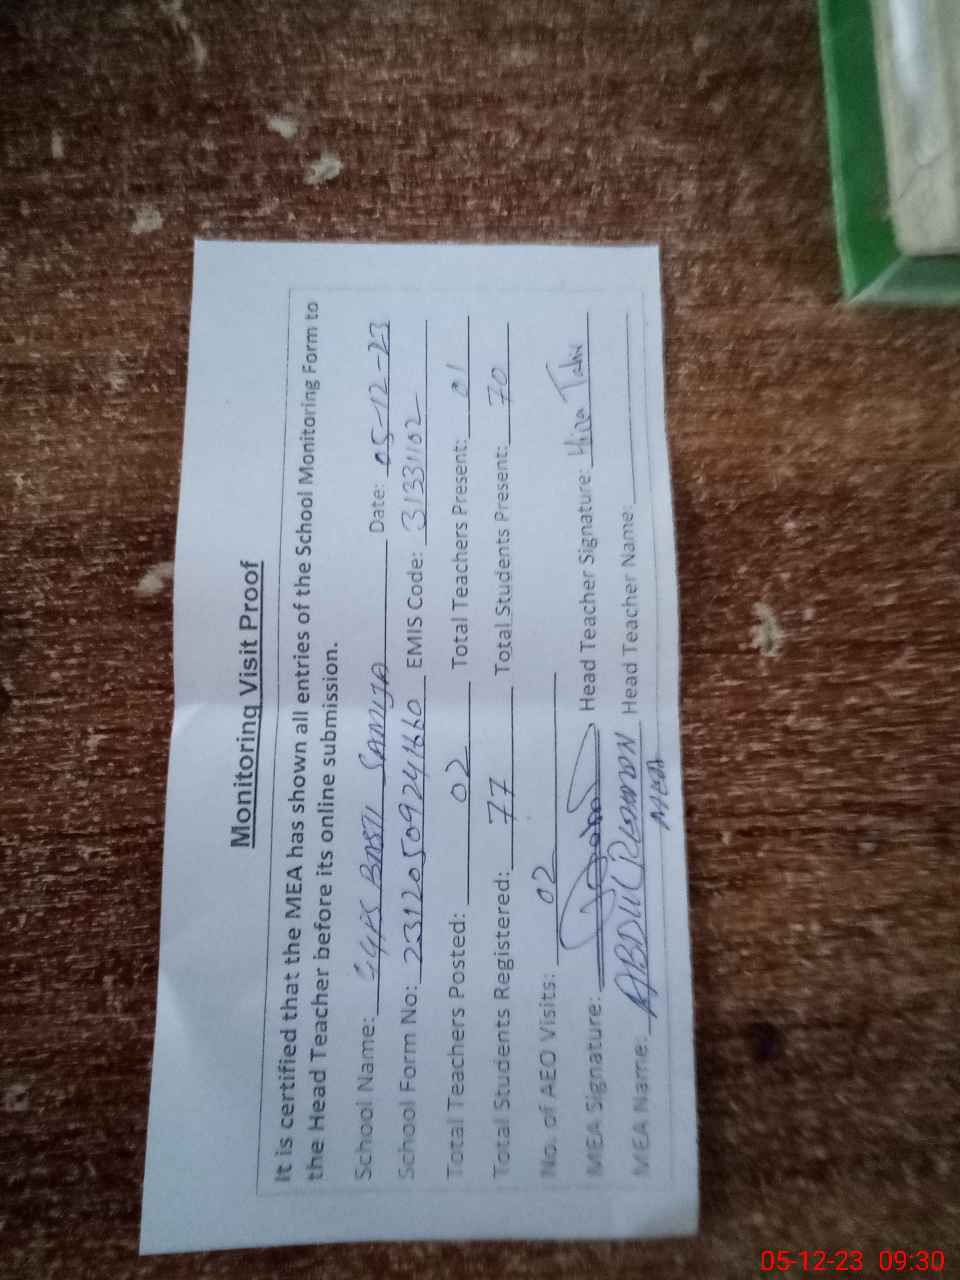 Monitoring Visit Proof
It is certified that the MEA has shown all entries of the School Monitoring Form to
the Head Teacher before its online submission.
School Name: GGPS BASTI SAMIJA Date: 05-12-23
School Form No: EMIS Code: 31331102
Total Teachers Posted: 02 Total Teachers Present: 01
Total Students Registered: 77 Total Students Present: 70
No. of AEO Visits: 02
MEA Signature: Head Teacher Signature: Hira
MEA Name: ABDUL REHMAN Head Teacher Name:
MEA
05-12-23 09:30